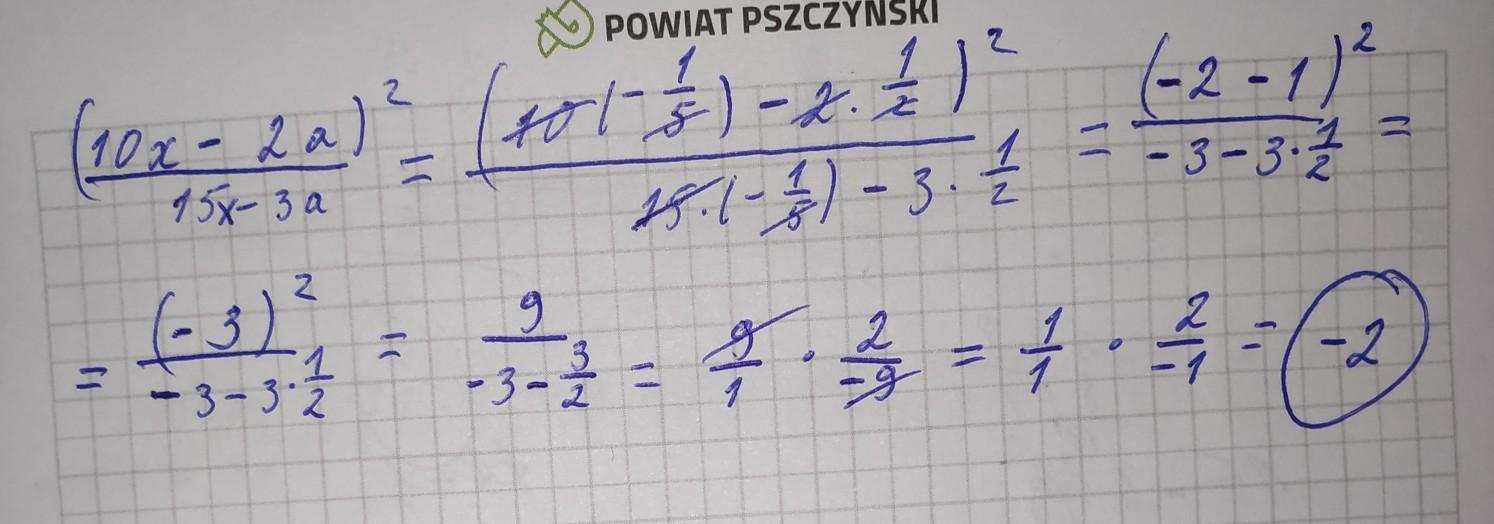 POWIAT PSZCZYŃSKI
(10x - 2a)² / 15x - 3a = (10(-1/5) - 2·1/2)² / 15·(-1/5) - 3·1/2 = (-2 - 1)² / -3 - 3·1/2 =
= (-3)² / -3 - 3·1/2 = 9 / -3 - 3/2 = 9/1 · 2/-9 = 1/1 · 2/-1 = -2